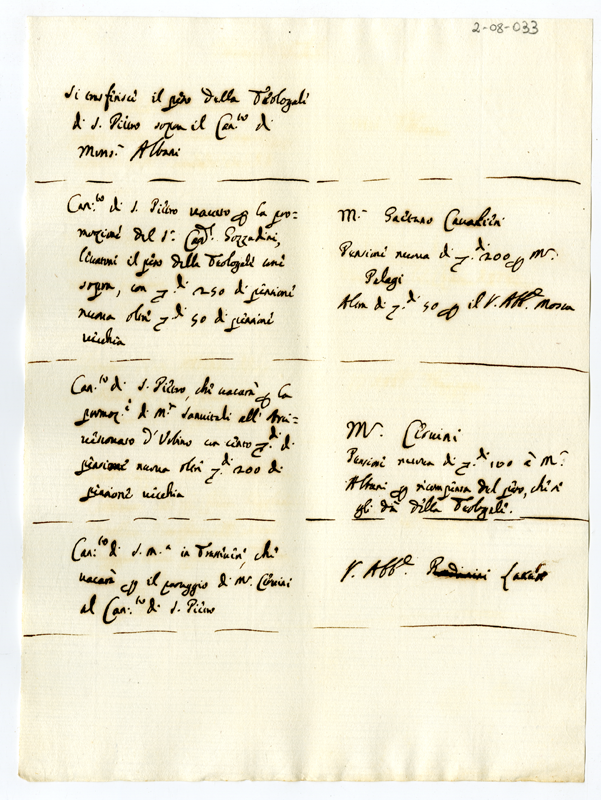 2-08-033
Si trasferisce il peso della Teologale
di S. Pietro sopra il Can.to di
Mons.r Albani
Can.to di S. Pietro vacato p la pro=
mozione del S.r Card.l Gozzadini,
levatone il peso della Teologale come
sopra, con z.di 250 di pensione
nuova oltre z.di 50 di pensione
vecchia
M.r Gaetano Cavalieri
Pensione nuova di z.di 200 p M.r
Pelagi
Altra di z.di 50 p il V. Abb.e Mosca
Can.to di S. Pietro, che vacarà p la
promoz.e di M.r Sanvitali all' Arci=
vescovato d'Urbino con cento z.di di
pensione nuova oltre z.di 200 di
pensione vecchia
M.r Cervini
Pensione nuova di z.di 100 à M.r
Albani p ricompensa del peso, che se
gli dà della Teologale.
Can.to di S. M.a in Trastevere, che
vacarà p il passaggio di M.r Cervini
al Can.to di S. Pietro
V. Abb.e